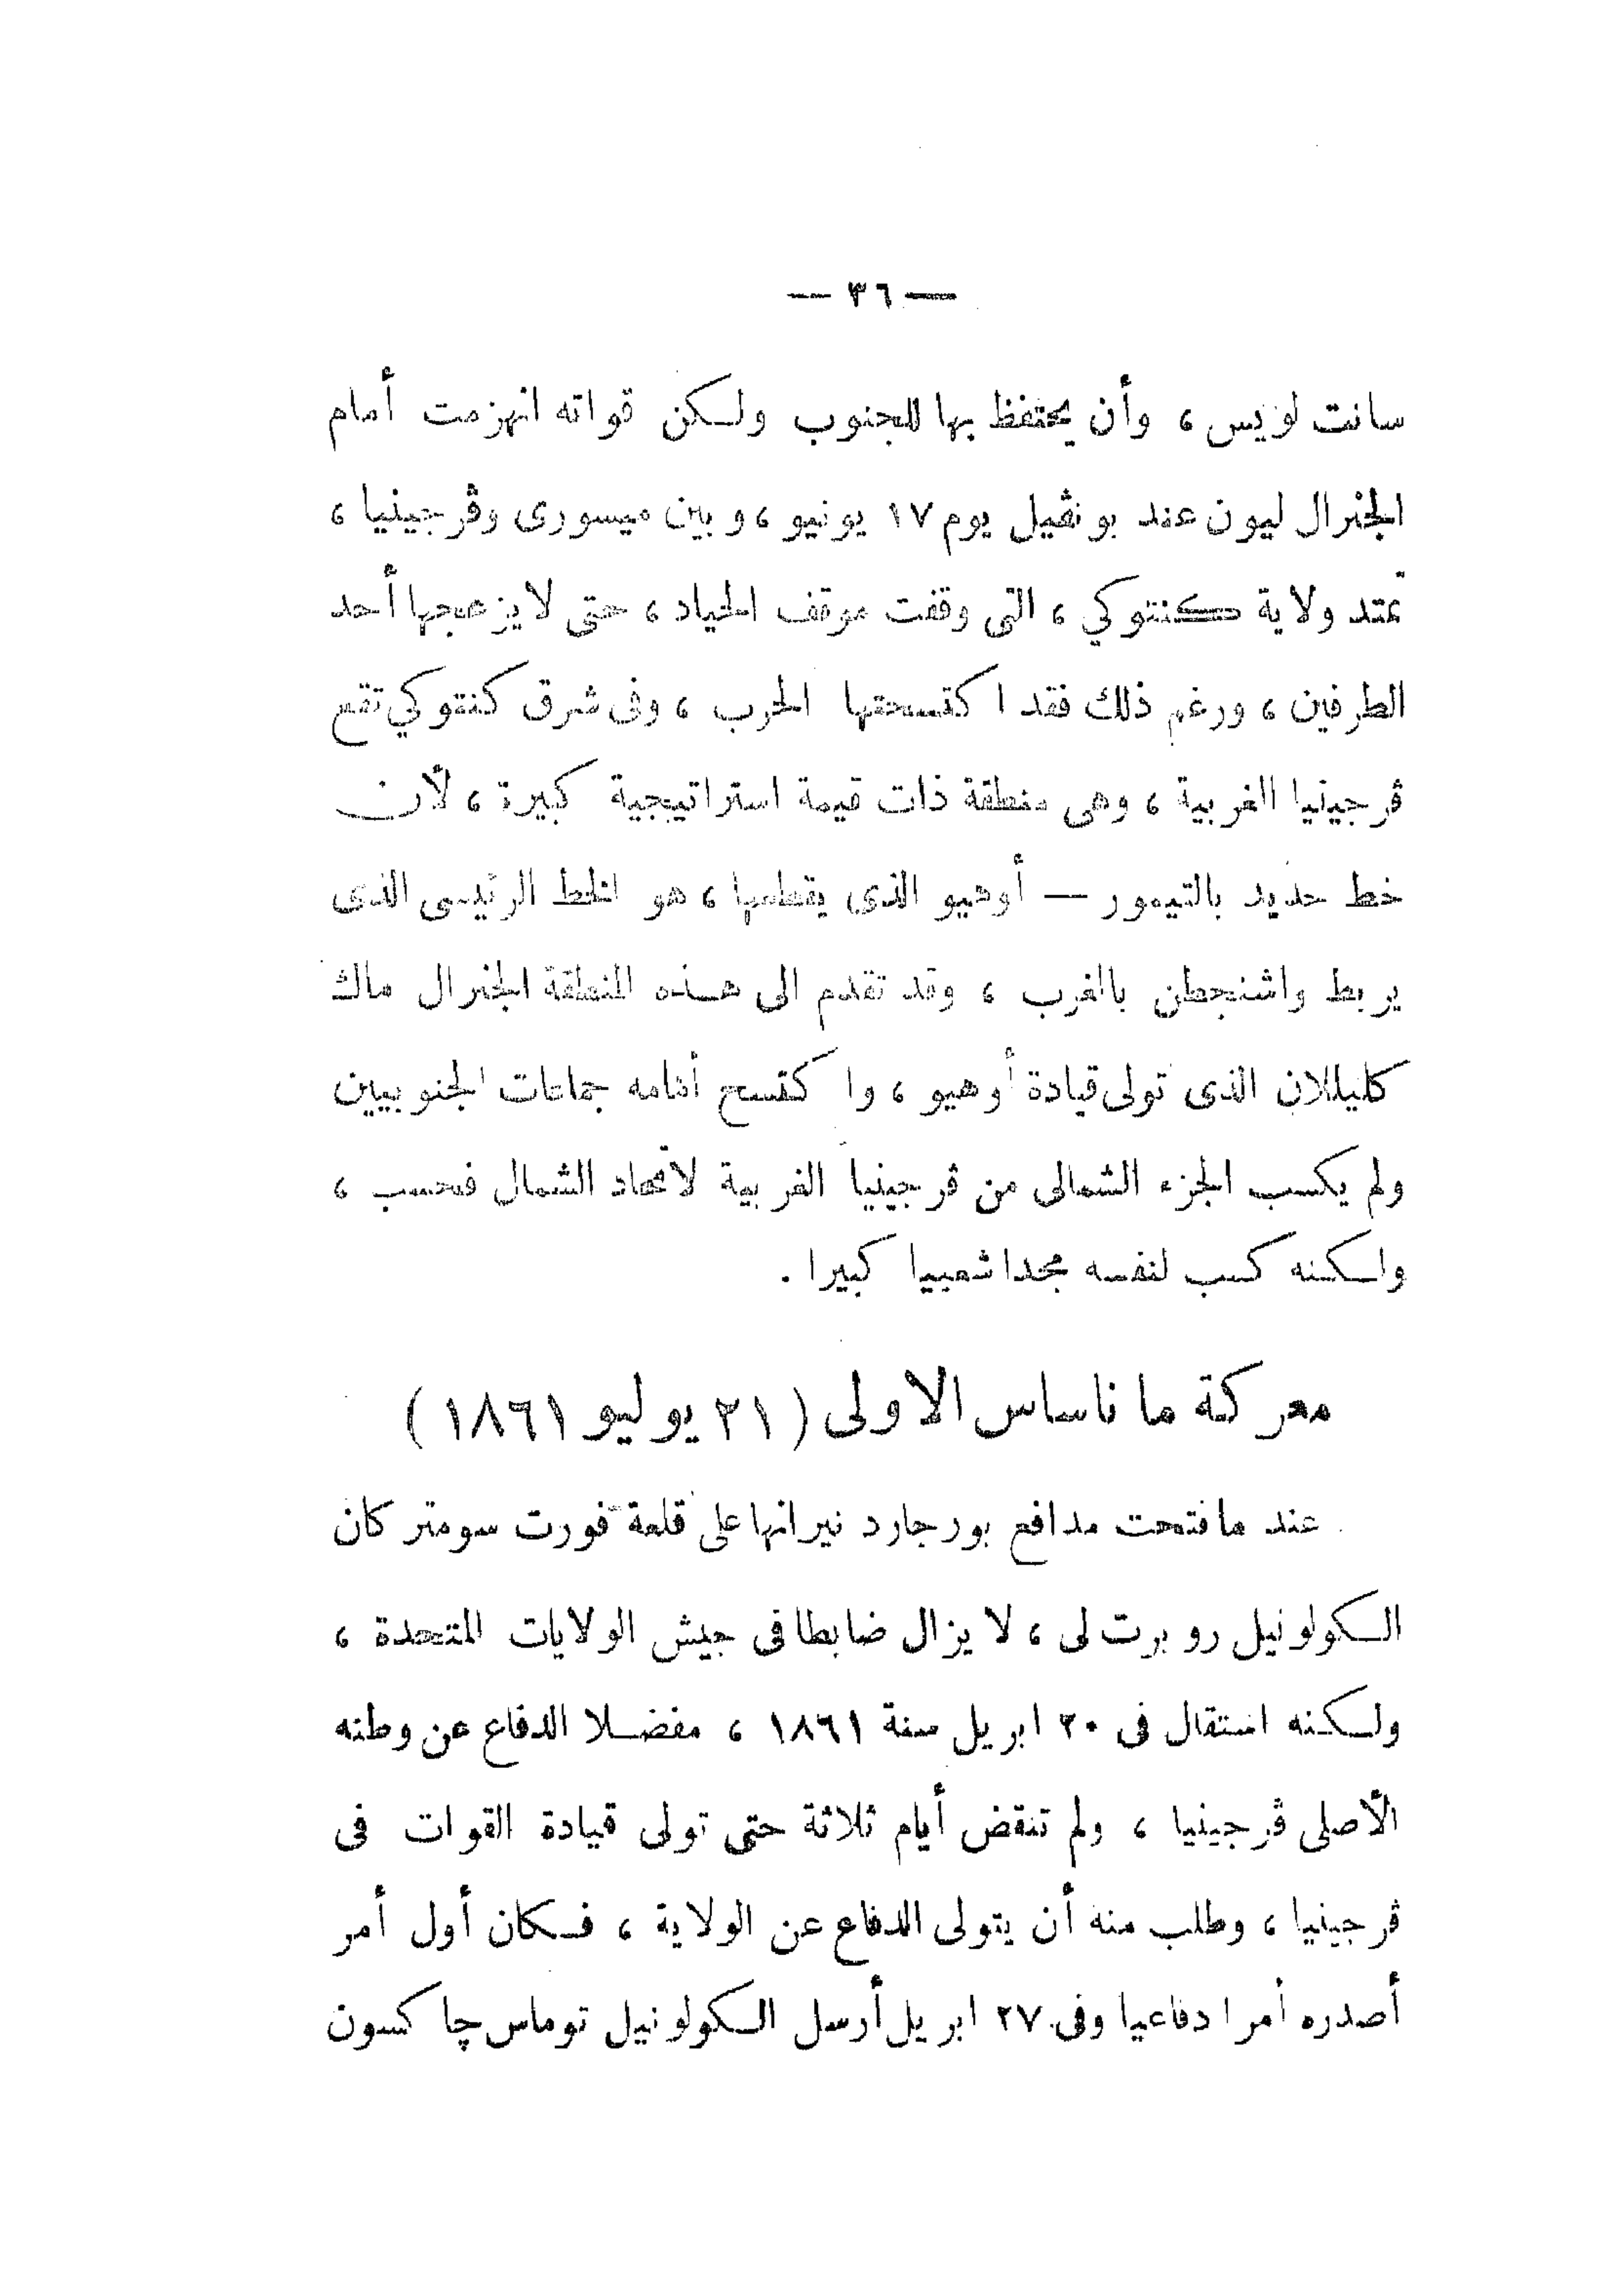 — ٣٦ —
سانت لويس ، وأن يحتفظ بها للجنوب ولكن قواته انهزمت أمام
الجنرال ليون عند بونڤيل يوم ١٧ يونيو ، وبين ميسورى وڤرجينيا ،
تمتد ولاية كنتوكي ، التى وقفت موقف الحياد ، حتى لا يزعجها أحد
الطرفين ، ورغم ذلك فقد اكتسحتها الحرب ، وفى شرق كنتوكي تقع
ڤرجينيا الغربية ، وهى منطقة ذات قيمة استراتيجية كبيرة ، لأن
خط حديد بالتيمور — أوهيو الذى يقطعها ، هو الخط الرئيسى الذى
يربط واشنجطن بالغرب ، وقد تقدم الى هذه المنطقة الجنرال ماك
كليللان الذى تولى قيادة أوهيو ، واكتسح أمامه جماعات الجنوبيين
ولم يكسب الجزء الشمالى من ڤرجينيا الغربية لاتحاد الشمال فحسب ،
ولكنه كسب لنفسه مجدا شعبيا كبيرا .
معركة ماناساس الاولى (٢١ يوليو ١٨٦١)
عند مافتحت مدافع بورجارد نيرانها على قلعة فورت سومتر كان
الكولونيل روبرت لى ، لا يزال ضابطا فى جيش الولايات المتحدة ،
ولكنه استقال فى ٢٠ ابريل سنة ١٨٦١ ، مفضلا الدفاع عن وطنه
الأصلى ڤرجينيا ، ولم تنقض أيام ثلاثة حتى تولى قيادة القوات فى
ڤرجينيا ، وطلب منه أن يتولى الدفاع عن الولاية ، فكان أول أمر
أصدره أمرا دفاعيا وفى ٢٧ ابريل أرسل الكولونيل توماس چاكسون